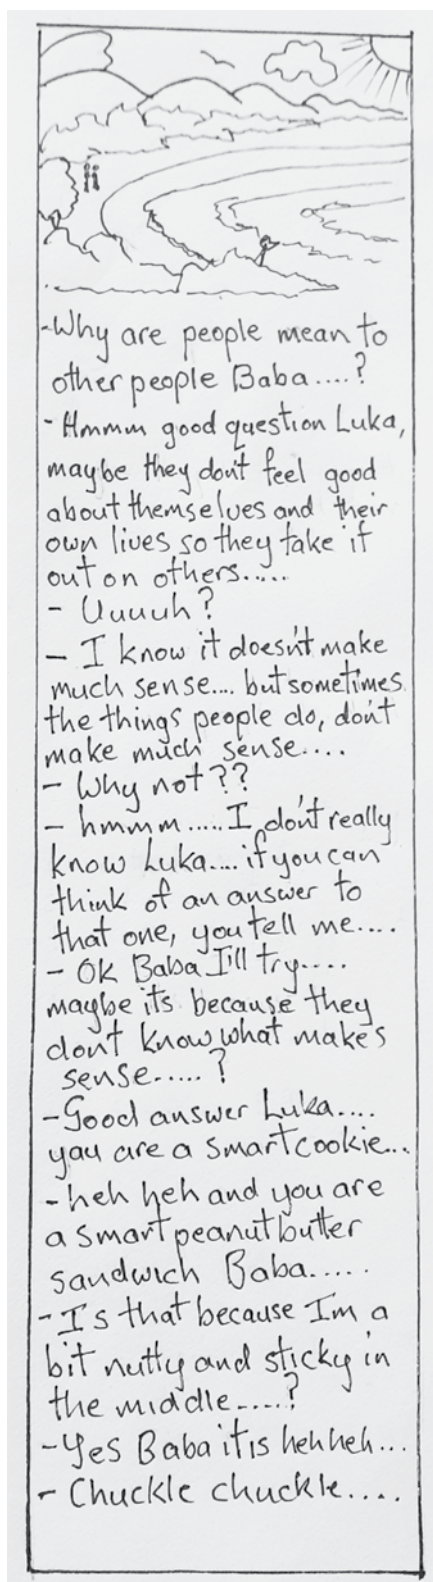 -Why are people mean to
other people Baba....?
- Hmmm good question Luka,
maybe they don't feel good
about themselves and their
own lives so they take it
out on others.....
- Uuuuh?
- I know it doesn't make
much sense.... but sometimes
the things people do, don't
make much sense....
- Why not??
- hmmm.....I don't really
know Luka....if you can
think of an answer to
that one, you tell me....
- OK Baba I'll try....
maybe its because they
dont know what makes
sense.....?
-Good answer Luka....
you are a smart cookie...
-heh heh and you are
a smart peanut butter
sandwich Baba.....
-I's that because Im a
bit nutty and sticky in
the middle.....?
-Yes Baba it is heh heh...
- Chuckle chuckle....